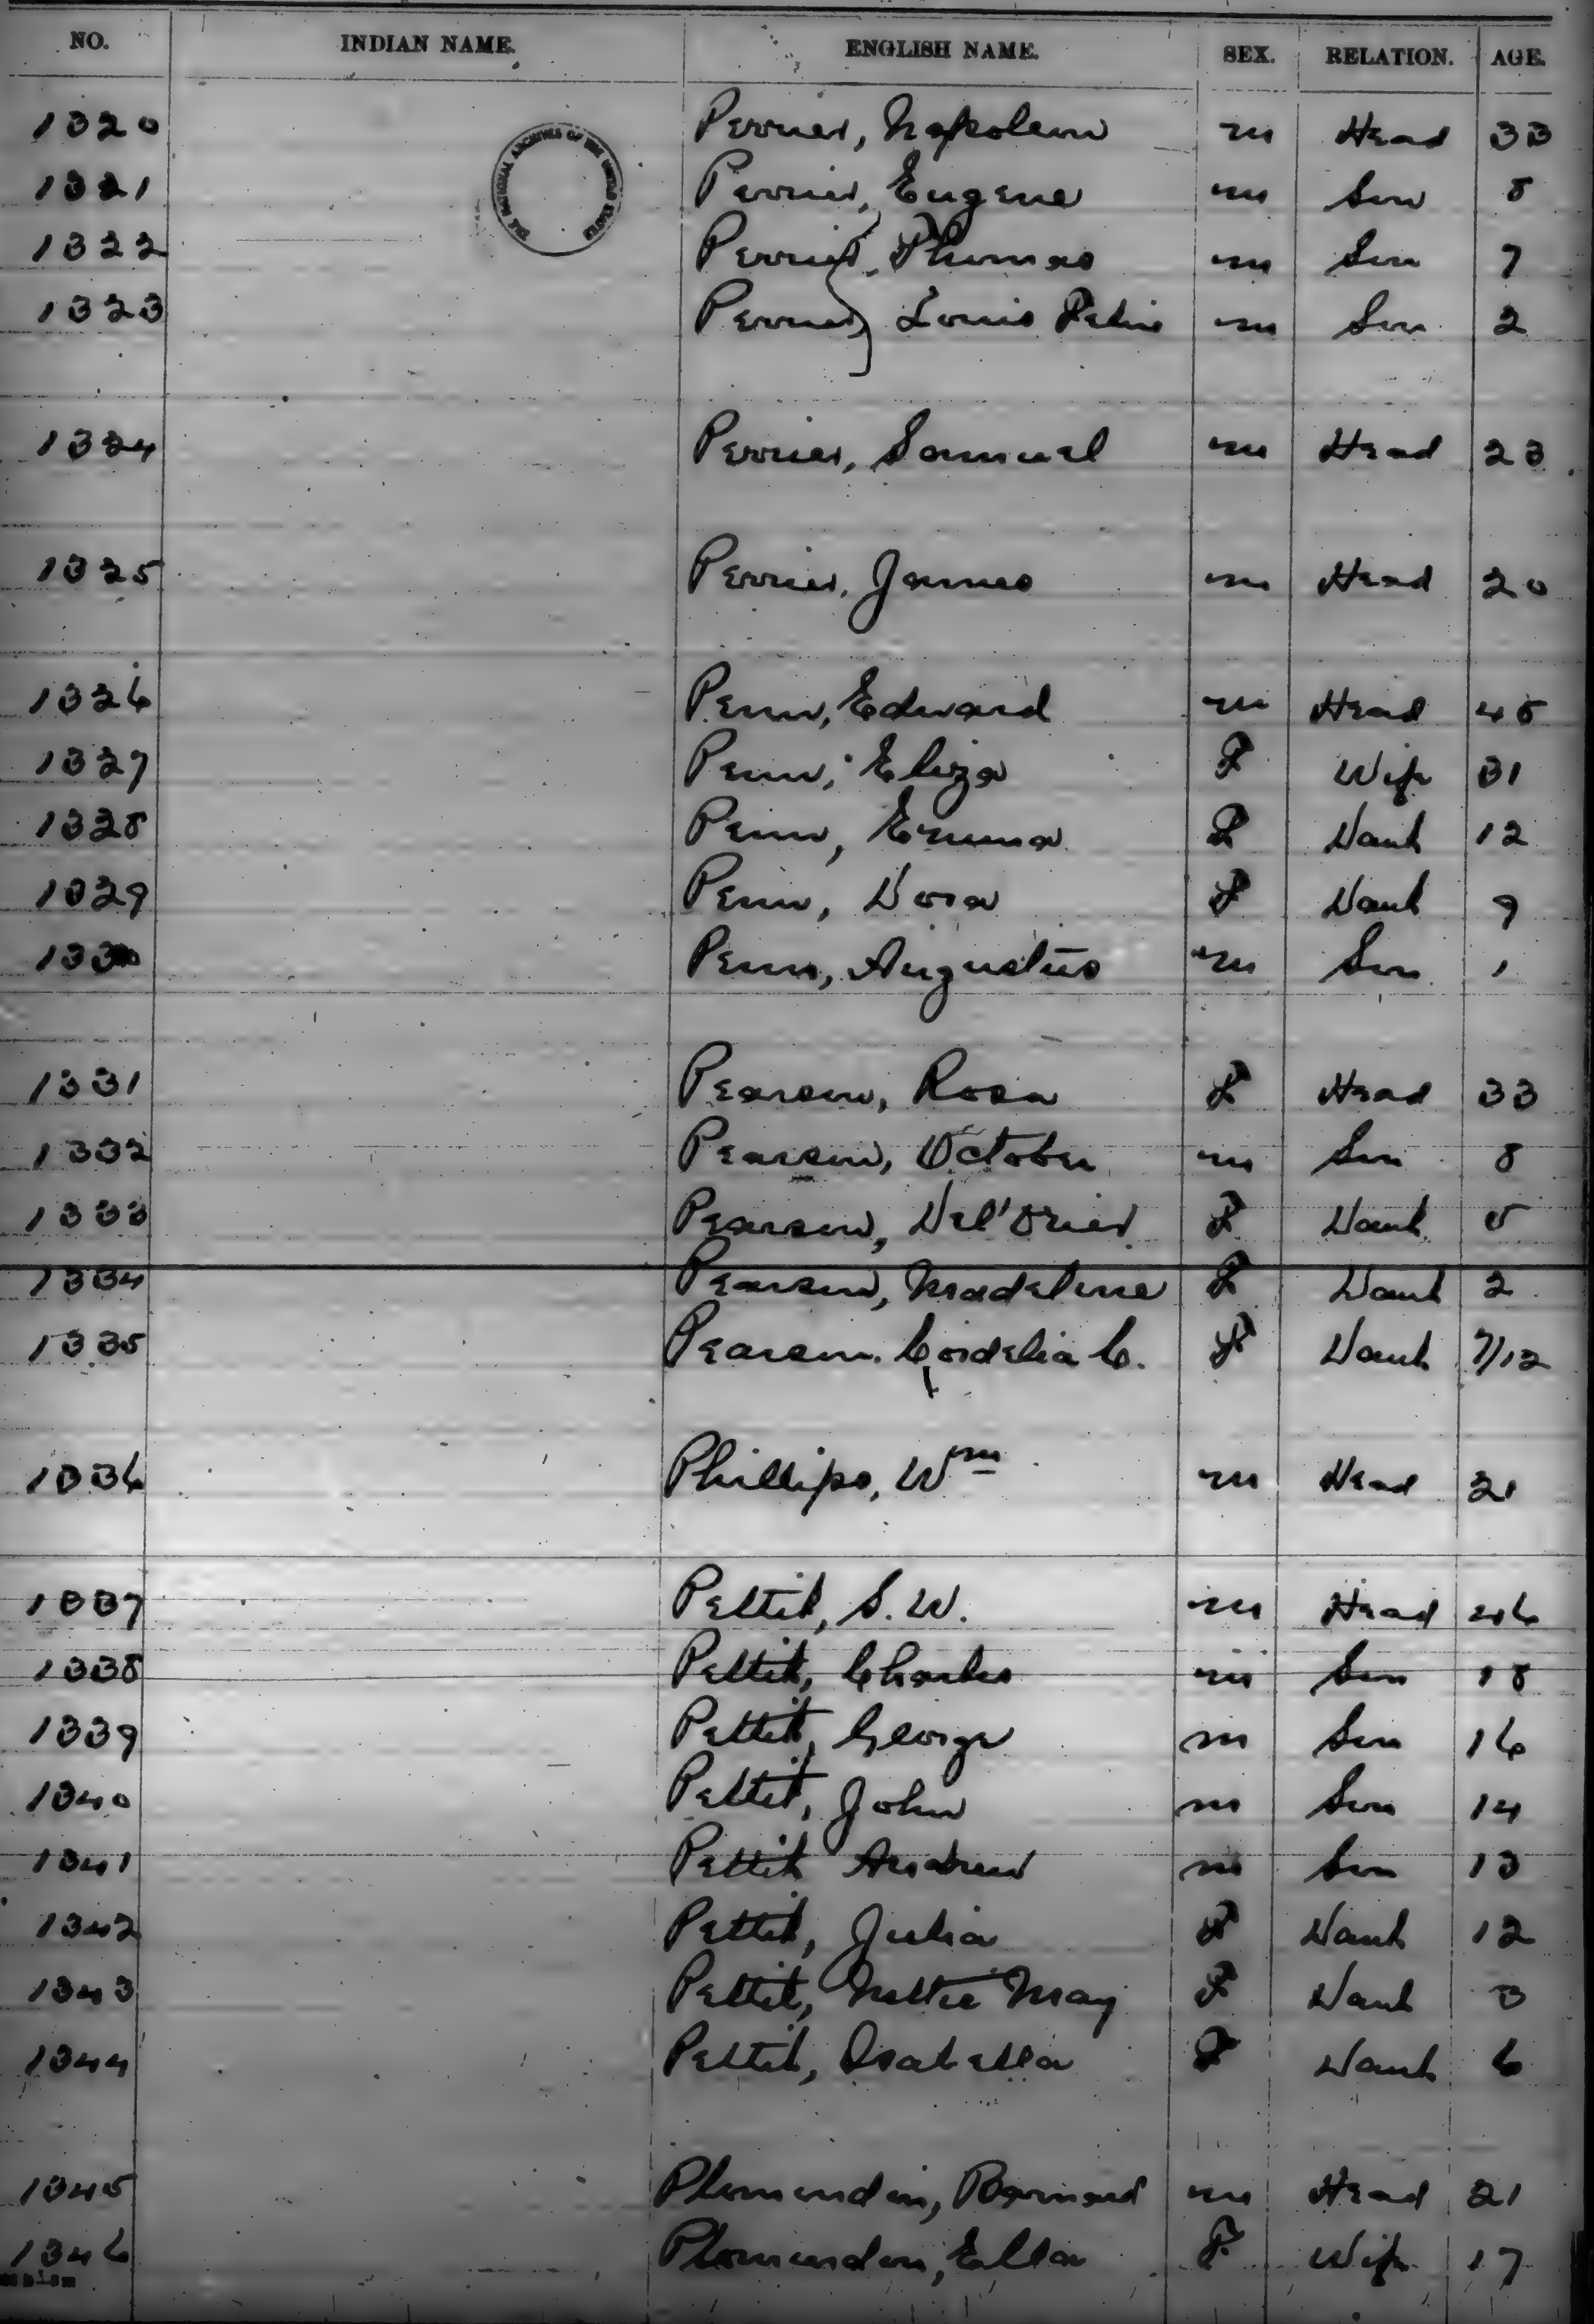 NO. INDIAN NAME. ENGLISH NAME. SEX. RELATION. AGE.
THE NATIONAL ARCHIVES OF THE UNITED STATES
1320 Perrier, Napoleon m Head 33
1321 Perrier, Eugene m Son 8
1322 Perrier, Thomas m Son 7
1323 Perrier, Louis m Son 2
1324 Perrier, Samuel m Head 23
1325 Perrier, James m Head 20
1326 Penn, Edward m Head 48
1327 Penn, Eliza F Wife 31
1328 Penn, Emma F Daut 12
1329 Penn, Dora F Daut 9
1330 Penn, Augustus m Son 1
1331 Pearson, Rosa F Head 33
1332 Pearson, October m Son 8
1333 Pearson, Del'Orier F Daut 5
1334 Pearson, Madeline F Daut 2
1335 Pearson, Cordelia C. F Daut 7/12
1336 Phillips, Wm m Head 21
1337 Pettit, S. W. m Head 46
1338 Pettit, Charles m Son 18
1339 Pettit, George m Son 16
1340 Pettit, John m Son 14
1341 Pettit Andrew m Son 13
1342 Pettit, Julia F Daut 12
1343 Pettit, Nettie May F Daut 3
1344 Pettit, Isabella F Daut 6
1345 Plomondon, Barnard m Head 21
1346 Plomondon, Ella F Wife 17